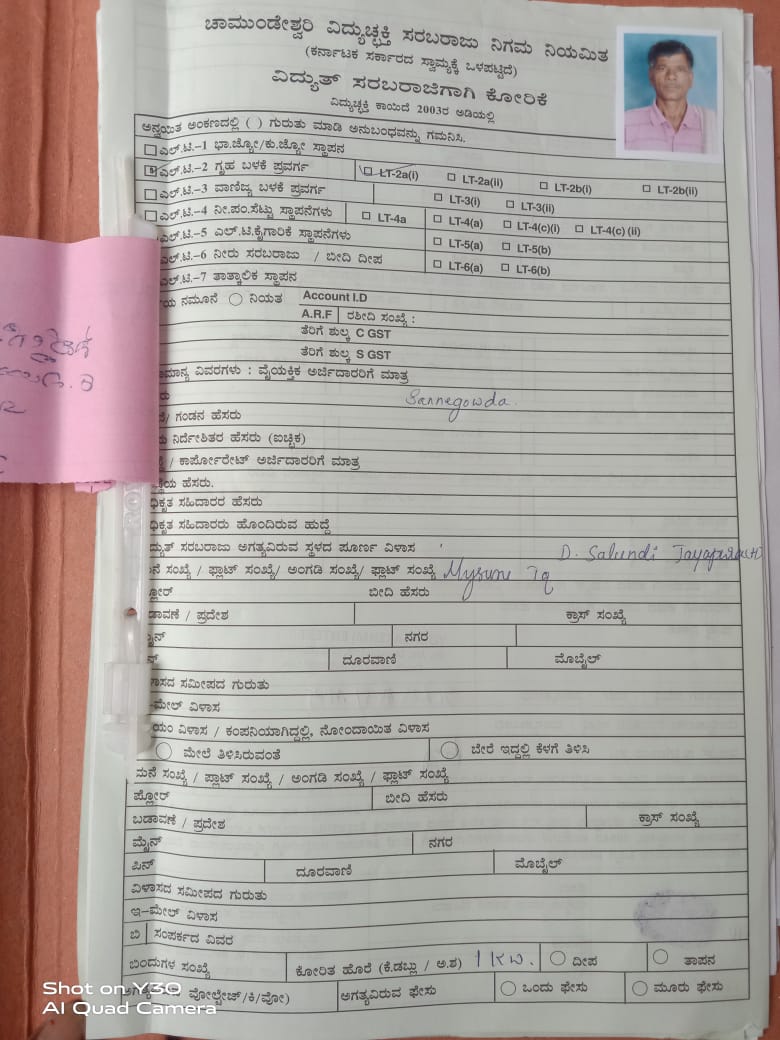 ಚಾಮುಂಡೇಶ್ವರಿ ವಿದ್ಯುಚ್ಛಕ್ತಿ ಸರಬರಾಜು ನಿಗಮ ನಿಯಮಿತ
(ಕರ್ನಾಟಕ ಸರ್ಕಾರದ ಸ್ವಾಮ್ಯಕ್ಕೆ ಒಳಪಟ್ಟಿದೆ)
ವಿದ್ಯುತ್ ಸರಬರಾಜಿಗಾಗಿ ಕೋರಿಕೆ
ವಿದ್ಯುಚ್ಛಕ್ತಿ ಕಾಯಿದೆ 2003ರ ಅಡಿಯಲ್ಲಿ
ಅನ್ವಯಿತ ಅಂಕಣದಲ್ಲಿ ( ) ಗುರುತು ಮಾಡಿ ಅನುಬಂಧವನ್ನು ಗಮನಿಸಿ.
ಎಲ್.ಟಿ.–1 ಭಾ.ಜ್ಯೋ/ಕು.ಜ್ಯೋ ಸ್ಥಾಪನ
ಎಲ್.ಟಿ.–2 ಗೃಹ ಬಳಕೆ ಪ್ರವರ್ಗ LT-2a(i) LT-2a(ii) LT-2b(i) LT-2b(ii)
ಎಲ್.ಟಿ.–3 ವಾಣಿಜ್ಯ ಬಳಕೆ ಪ್ರವರ್ಗ LT-3(i) LT-3(ii)
ಎಲ್.ಟಿ.–4 ನೀ.ಪಂ.ಸೆಟ್ಟು ಸ್ಥಾಪನೆಗಳು LT-4a LT-4(a) LT-4(c)(i) LT-4(c) (ii)
ಎಲ್.ಟಿ.–5 ಎಲ್.ಟಿ.ಕೈಗಾರಿಕೆ ಸ್ಥಾಪನೆಗಳು LT-5(a) LT-5(b)
ಎಲ್.ಟಿ.–6 ನೀರು ಸರಬರಾಜು / ಬೀದಿ ದೀಪ LT-6(a) LT-6(b)
ಎಲ್.ಟಿ.–7 ತಾತ್ಕಾಲಿಕ ಸ್ಥಾಪನ
ನಮೂನೆ ನಿಯತ Account I.D
A.R.F ರಶೀದಿ ಸಂಖ್ಯೆ :
ತೆರಿಗೆ ಶುಲ್ಕ C GST
ತೆರಿಗೆ ಶುಲ್ಕ S GST
ವಿವರಗಳು : ವೈಯಕ್ತಿಕ ಅರ್ಜಿದಾರರಿಗೆ ಮಾತ್ರ
Sannegowda.
/ ಗಂಡನ ಹೆಸರು
ನಿರ್ದೇಶಿತರ ಹೆಸರು (ಐಚ್ಛಿಕ)
/ ಕಾರ್ಪೋರೇಟ್ ಅರ್ಜಿದಾರರಿಗೆ ಮಾತ್ರ
ಹೆಸರು.
ಸಹಿದಾರರ ಹೆಸರು
ಸಹಿದಾರರು ಹೊಂದಿರುವ ಹುದ್ದೆ
ಸರಬರಾಜು ಅಗತ್ಯವಿರುವ ಸ್ಥಳದ ಪೂರ್ಣ ವಿಳಾಸ D. Salundi
ಸಂಖ್ಯೆ / ಫ್ಲಾಟ್ ಸಂಖ್ಯೆ/ ಅಂಗಡಿ ಸಂಖ್ಯೆ/ ಫ್ಲಾಟ್ ಸಂಖ್ಯೆ Mysune Tq
ಬೀದಿ ಹೆಸರು
/ ಪ್ರದೇಶ ಕ್ರಾಸ್ ಸಂಖ್ಯೆ
ನಗರ
ದೂರವಾಣಿ ಮೊಬೈಲ್
ಸಮೀಪದ ಗುರುತು
ವಿಳಾಸ
ವಿಳಾಸ / ಕಂಪನಿಯಾಗಿದ್ದಲ್ಲಿ, ನೋಂದಾಯಿತ ವಿಳಾಸ
ಮೇಲೆ ತಿಳಿಸಿರುವಂತೆ ಬೇರೆ ಇದ್ದಲ್ಲಿ ಕೆಳಗೆ ತಿಳಿಸಿ
ಮನೆ ಸಂಖ್ಯೆ / ಪ್ಲಾಟ್ ಸಂಖ್ಯೆ / ಅಂಗಡಿ ಸಂಖ್ಯೆ / ಫ್ಲಾಟ್ ಸಂಖ್ಯೆ
ಫ್ಲೋರ್ ಬೀದಿ ಹೆಸರು
ಬಡಾವಣೆ / ಪ್ರದೇಶ ಕ್ರಾಸ್ ಸಂಖ್ಯೆ
ಮೈನ್ ನಗರ
ಪಿನ್ ದೂರವಾಣಿ ಮೊಬೈಲ್
ವಿಳಾಸದ ಸಮೀಪದ ಗುರುತು
ಇ–ಮೇಲ್ ವಿಳಾಸ
ಬಿ ಸಂಪರ್ಕದ ವಿವರ
ಬಿಂದುಗಳ ಸಂಖ್ಯೆ ಕೋರಿತ ಹೊರೆ (ಕೆ.ಡಬ್ಲು / ಅ.ಶ) 1 KW. ದೀಪ ತಾಪನ
ವೋಲ್ಟೇಜ್/ಕಿ/ವೋ) ಅಗತ್ಯವಿರುವ ಫೇಸು ಒಂದು ಫೇಸು ಮೂರು ಫೇಸು
Shot on Y30
AI Quad Camera